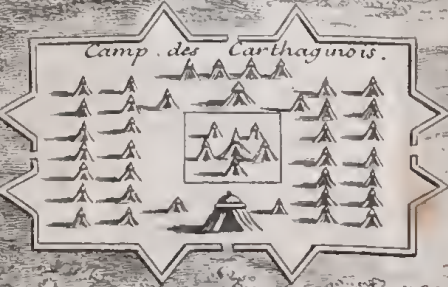 Camp des Carthaginois.